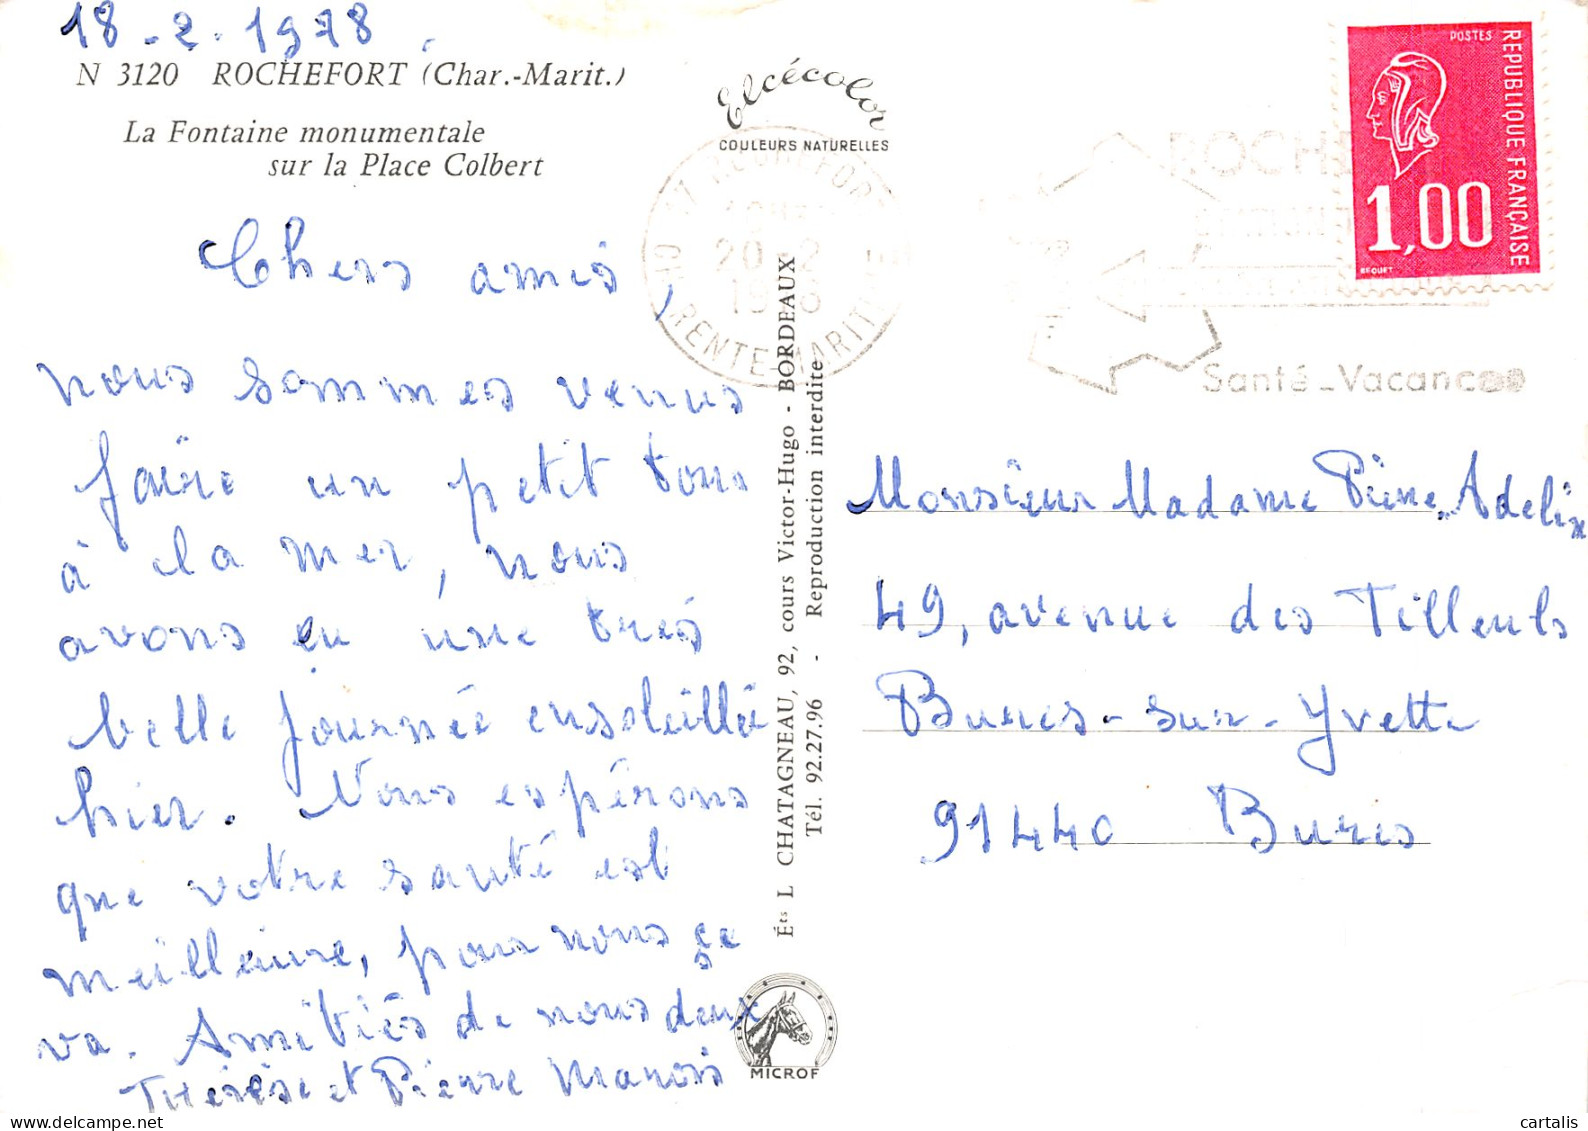 18-2-1978.
N 3120 ROCHEFORT (Char.-Marit.)
La Fontaine monumentale
sur la Place Colbert
Chers amis,
nous sommes venus
faire un petit tour
à la mer, nous
avons eu une très
belle journée ensoleillée
hier. Nous espérons
que votre santé est
meilleure, pour nous ça
va. Amitiés de nous deux
Thérèse et Pierre Manois
Elcécolor
COULEURS NATURELLES
17 ROCHEFORT
20-2
CHARENTE-MARITIME
Santé-Vacances
POSTES
REPUBLIQUE FRANÇAISE
1,00
BEQUET
Éts L CHATAGNEAU, 92, cours Victor-Hugo - BORDEAUX
Tél. 92.27.96 - Reproduction interdite
MICROF
Monsieur Madame Pierre Adelin
49, avenue des Tilleuls
Bures-sur-Yvette
91440 Bures
cartalis